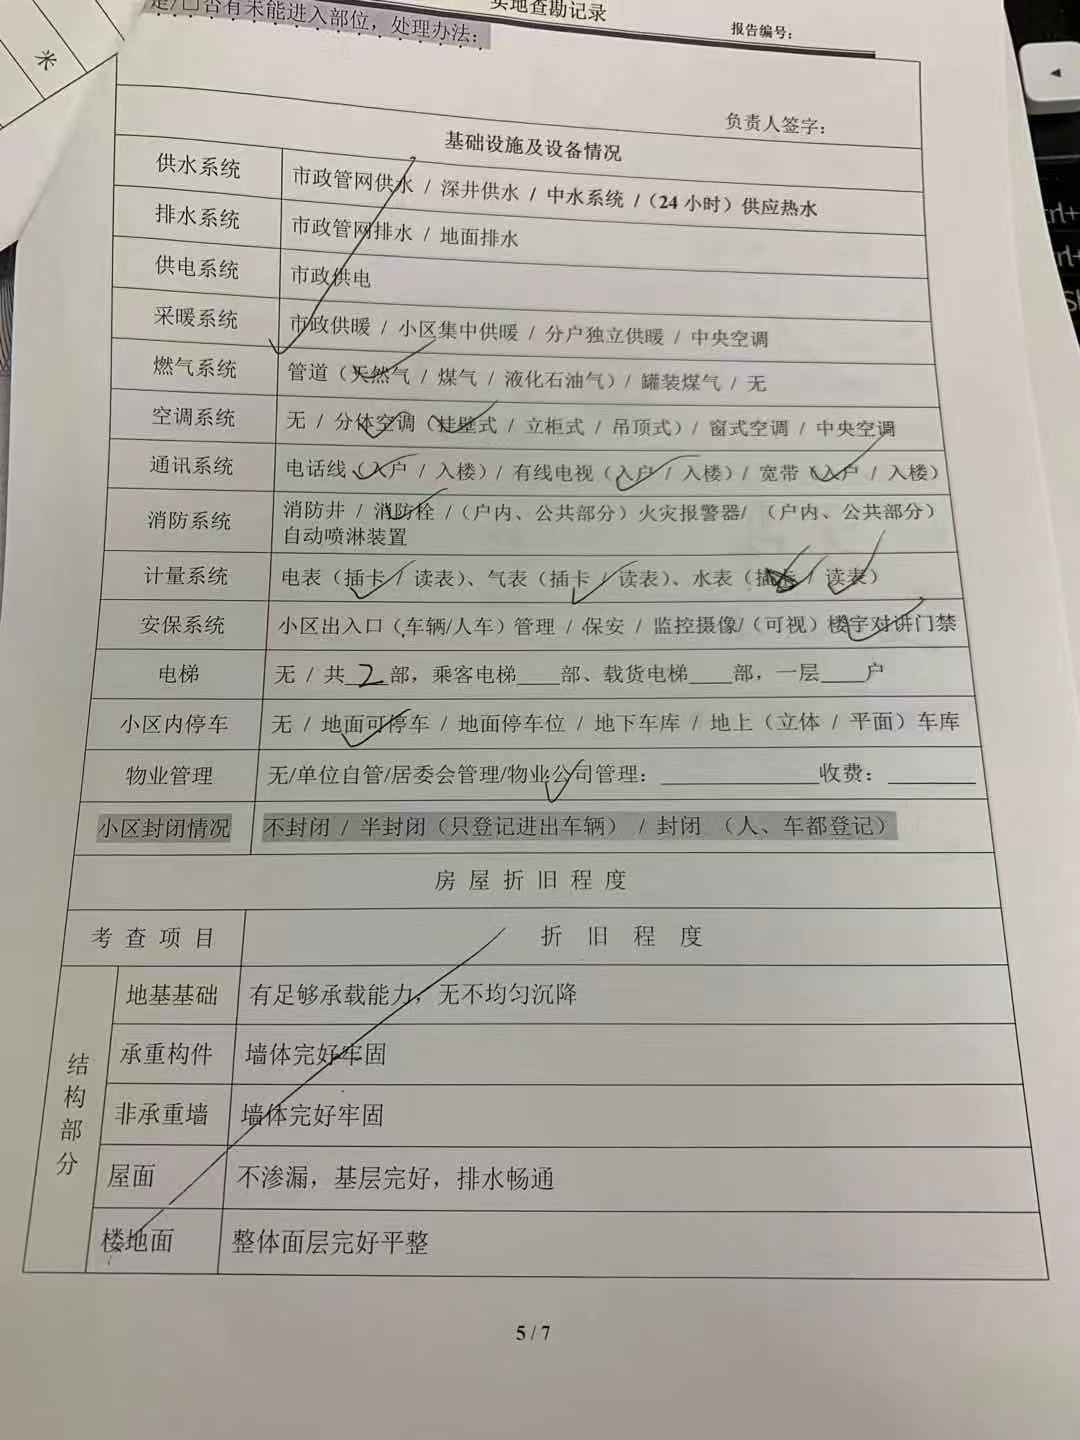 实地查勘记录
报告编号：
是/□否有未能进入部位，处理办法：
米
负责人签字：
基础设施及设备情况
供水系统 市政管网供水 / 深井供水 / 中水系统 /（24 小时）供应热水
排水系统 市政管网排水 / 地面排水
供电系统 市政供电
采暖系统 市政供暖 / 小区集中供暖 / 分户独立供暖 / 中央空调
燃气系统 管道（天然气 / 煤气 / 液化石油气）/ 罐装煤气 / 无
空调系统 无 / 分体空调（挂壁式 / 立柜式 / 吊顶式）/ 窗式空调 / 中央空调
通讯系统 电话线（入户 / 入楼）/ 有线电视（入户 / 入楼）/ 宽带（入户 / 入楼）
消防系统 消防井 / 消防栓 /（户内、公共部分）火灾报警器/ （户内、公共部分）
自动喷淋装置
计量系统 电表（插卡 / 读表）、气表（插卡 / 读表）、水表（插卡 / 读表）
安保系统 小区出入口（车辆/人车）管理 / 保安 / 监控摄像/（可视）楼宇对讲门禁
电梯 无 / 共 2 部，乘客电梯____部、载货电梯____部，一层____户
小区内停车 无 / 地面可停车 / 地面停车位 / 地下车库 / 地上（立体 / 平面）车库
物业管理 无/单位自管/居委会管理/物业公司管理：______________收费：________
小区封闭情况 不封闭 / 半封闭（只登记进出车辆） / 封闭 （人、车都登记）
房屋折旧程度
考查项目 折旧程度
结构部分
地基基础 有足够承载能力，无不均匀沉降
承重构件 墙体完好牢固
非承重墙 墙体完好牢固
屋面 不渗漏，基层完好，排水畅通
楼地面 整体面层完好平整
5 / 7